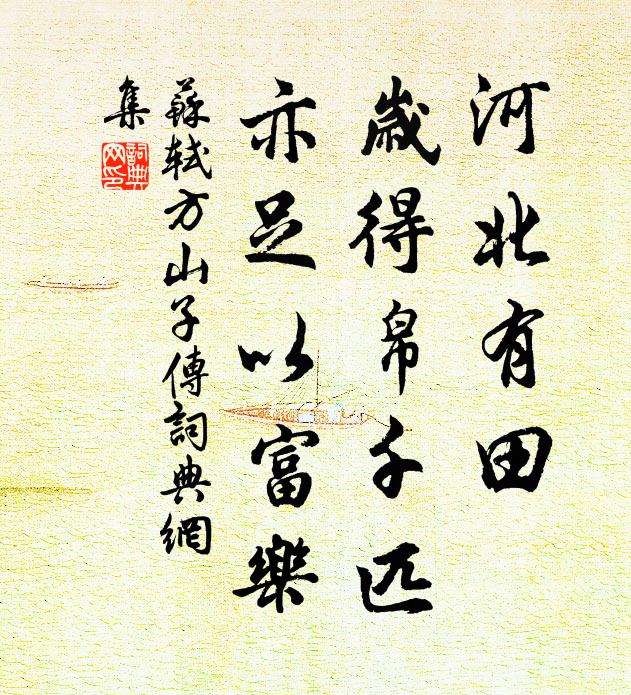 河北有田
歲得帛千匹
亦足以富樂
蘇軾方山子傳詞典網
集
詞典
网印